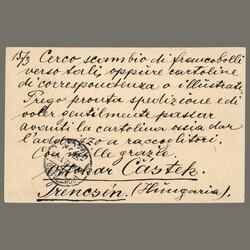 15/3 Cerco scambio di francobolli
verso tali, oppure cartoline
di correspondenza o illustrate
Prego pronta spedizione e di
voler gentilmente passar
avanti la cartolina ossia dar
l'adressso a raccoglitori.
Con mille grazie
Otokar Cástek.
Trencsén (Hungaria).